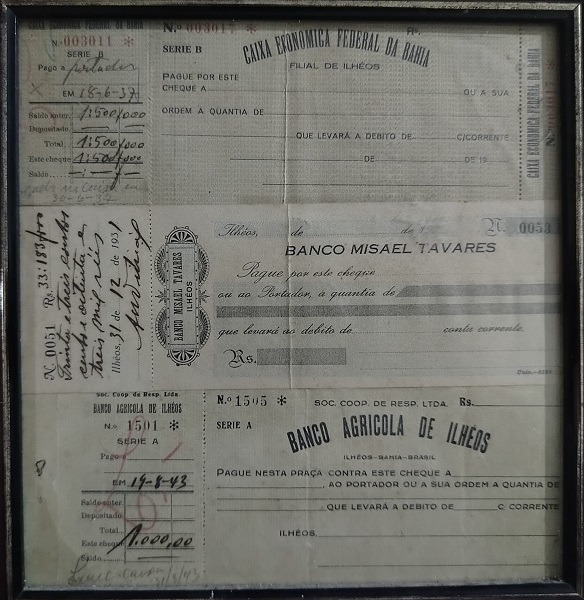 CAIXA ECONOMICA FEDERAL DA BAHIA
N. 003011 *
SERIE B
Pago a portador
EM 18-6-37
Saldo anter. 1:500/000
Depositado
Total. 1:500/000
Este cheque 1:500/000
Saldo
30-6-37
N.º 003017 * Rs.
SERIE B
CAIXA ECONOMICA FEDERAL DA BAHIA
FILIAL DE ILHÉOS
PAGUE POR ESTE
CHEQUE A OU A SUA
ORDEM A QUANTIA DE
QUE LEVARÁ A DEBITO DE C/CORRENTE
DE DE 19
CAIXA ECONOMICA FEDERAL DA BAHIA
N. 0051 Rs. 33:183/000
Trinta e treis contos
cento e oitenta e
treis mil réis
Ilhéos, 31 de 12 de 1931
BANCO MISAEL TAVARES
ILHÉOS
Ilhéos, de de 1 N. 0053
BANCO MISAEL TAVARES
Pague por este cheque
ou ao Portador, a quantia de
que levará ao debito de conta corrente.
Rs.
Soc. Coop. de Resp. Ltda.
BANCO AGRICOLA DE ILHÉOS
N.º 1501 *
SERIE A
Pago a
EM 19-8-43
Saldo anter.
Depositado
Total.
Este cheque 1.000,00
Saldo
N.º 1505 * SOC. COOP. DE RESP. LTDA. Rs.
SERIE A
BANCO AGRICOLA DE ILHÉOS
ILHÉOS-BAHIA-BRASIL
PAGUE NESTA PRAÇA CONTRA ESTE CHEQUE A
AO PORTADOR OU A SUA ORDEM A QUANTIA DE
QUE LEVARÁ A DEBITO DE C/ CORRENTE
ILHÉOS,